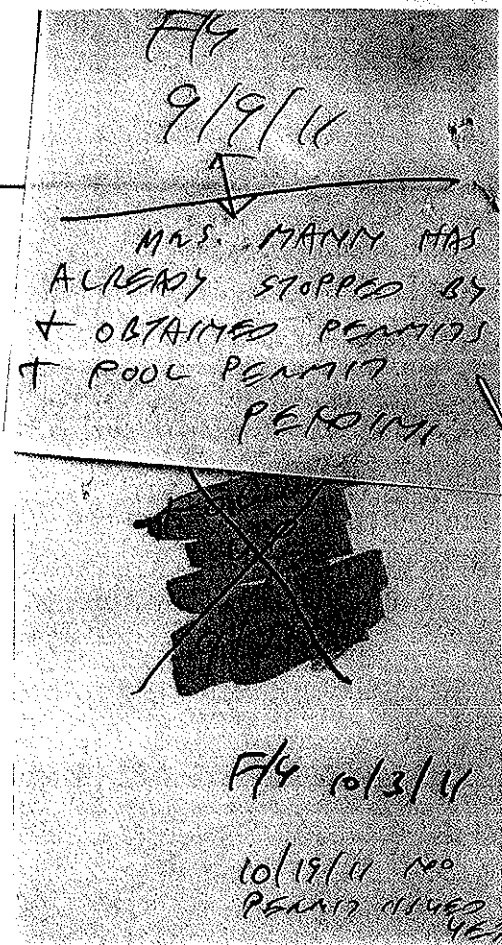 F/4
9/9/11
MRS. MANN HAS
ALREADY STOPPED BY
+ OBTAINED PERMITS
+ POOL PERMIT
PENDING
F/4 10/3/11
10/19/11 NO
PERMIT ISSUED
YET